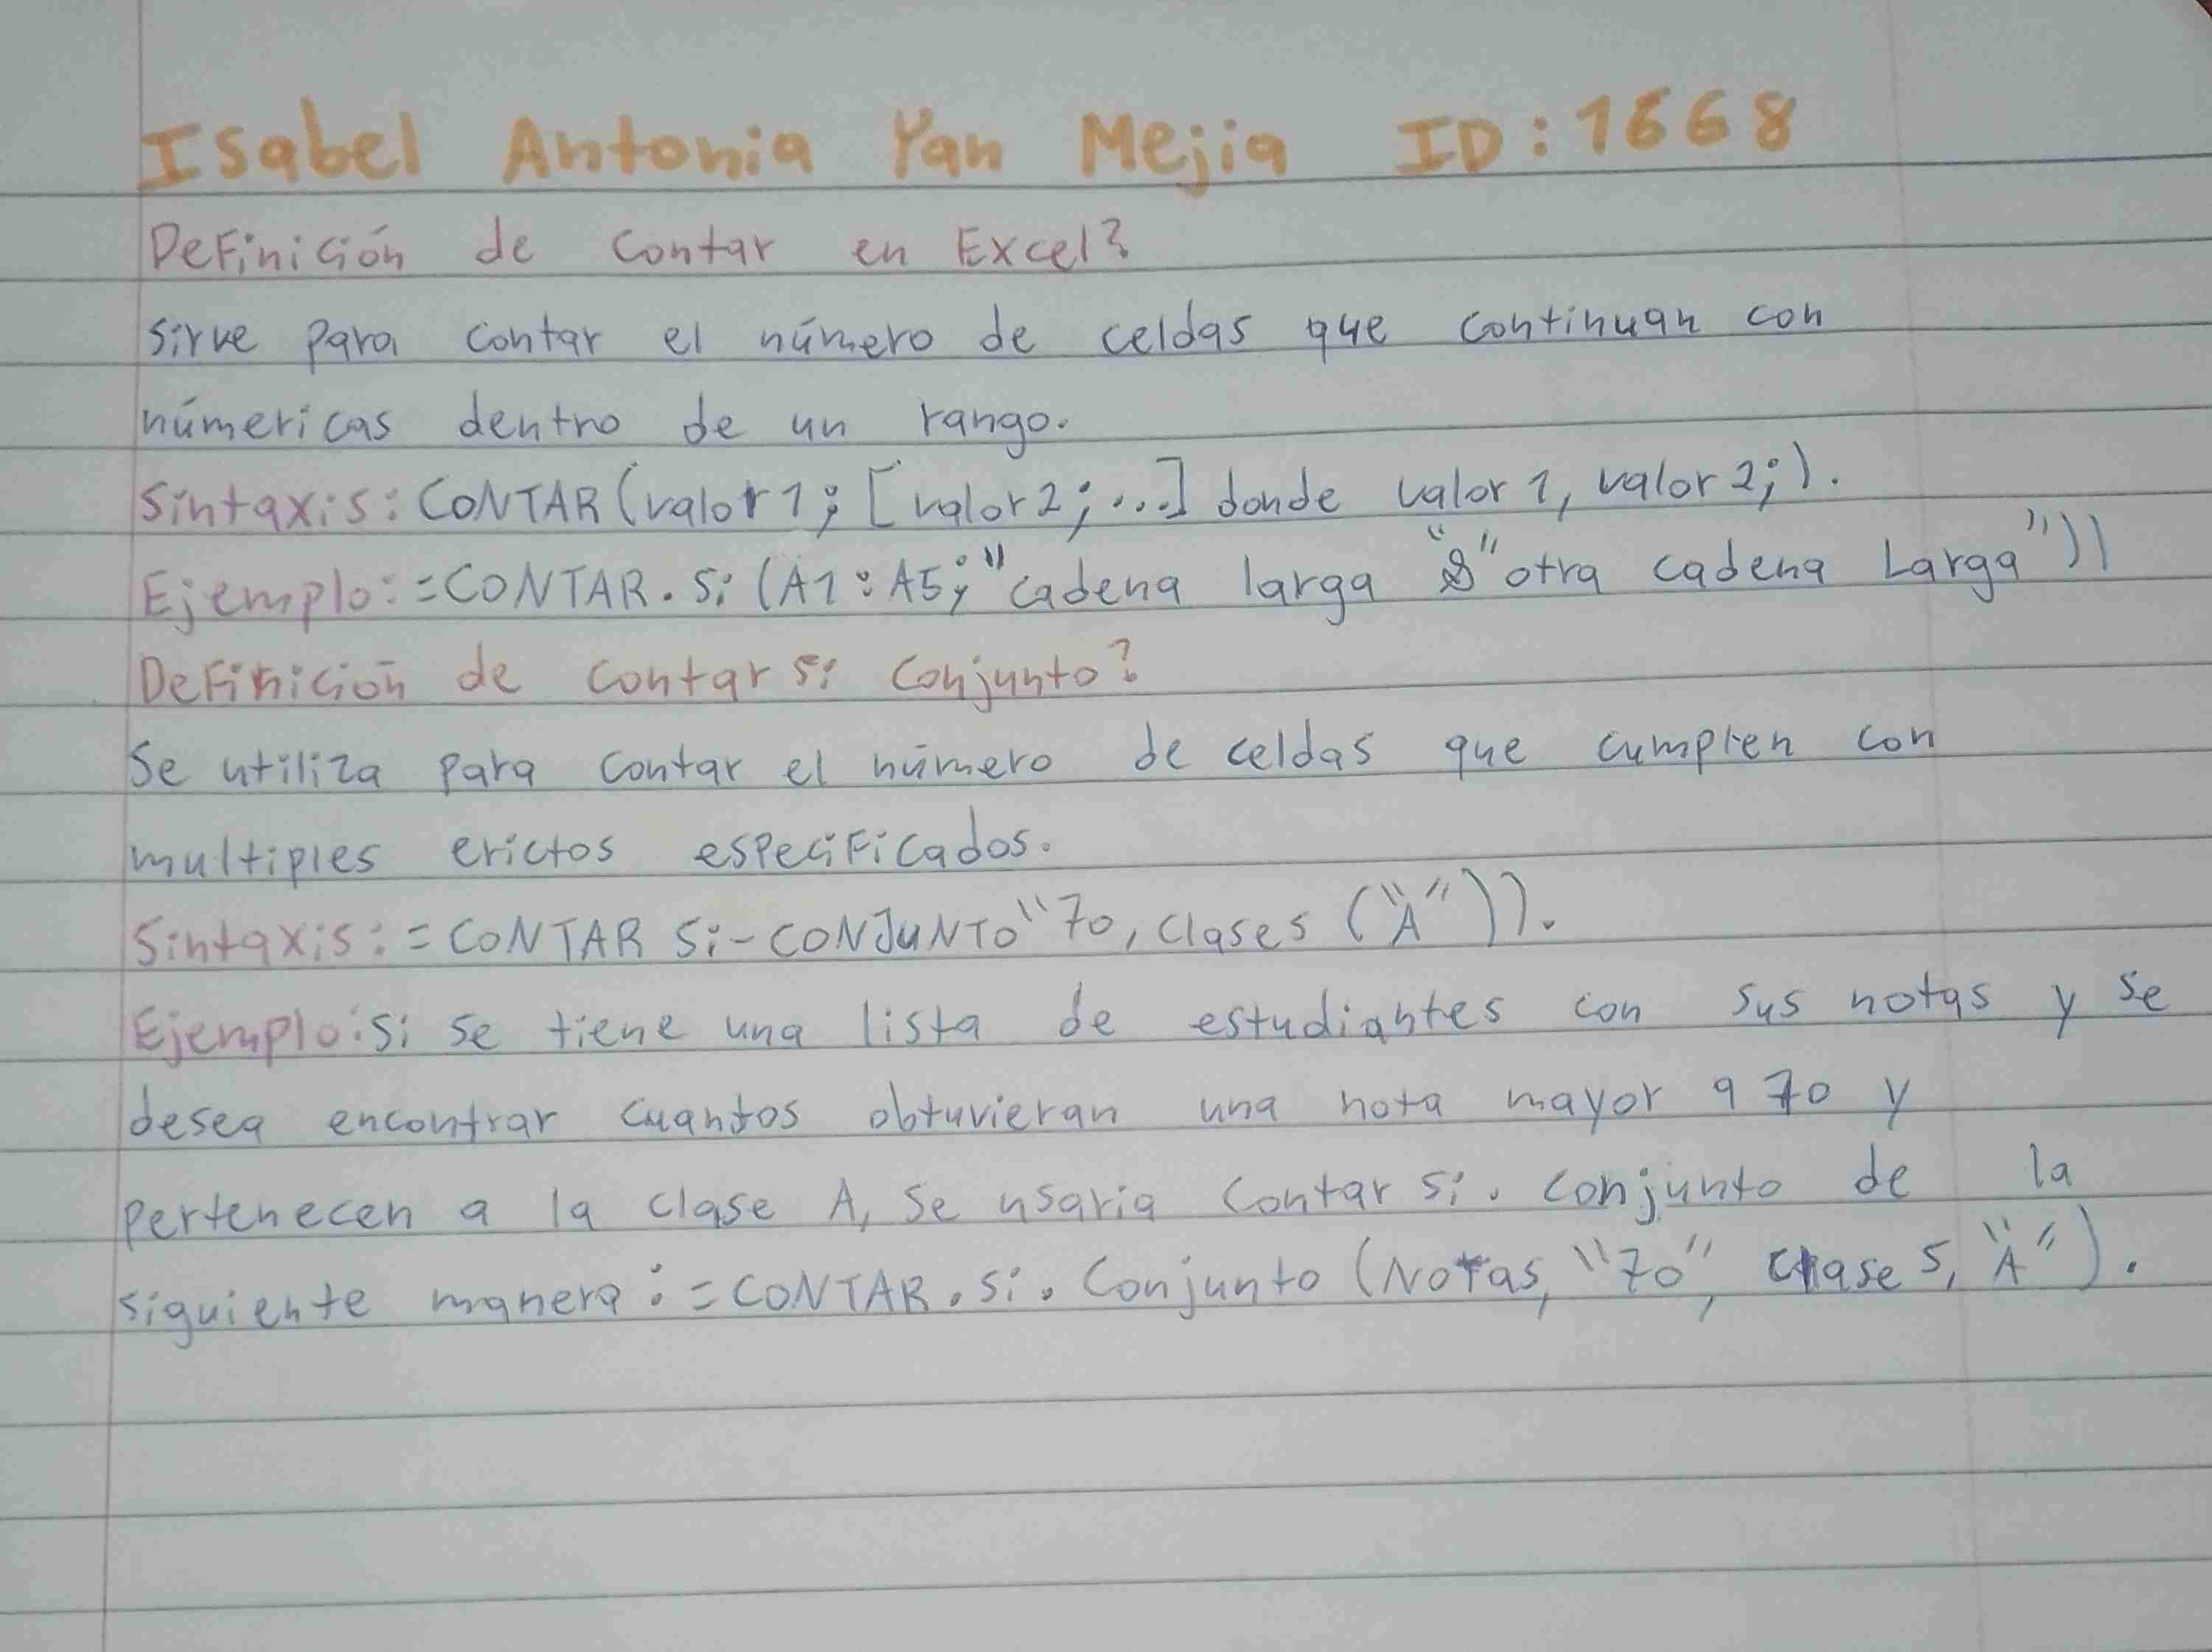 Isabel Antonia Yan Mejia ID:1668
Definición de contar en Excel?
sirve para contar el número de celdas que continuan con
númericas dentro de un rango.
Sintaxis: CONTAR(valor1; [valor2; ...] donde valor 1, valor 2;).
Ejemplo: =CONTAR.Si (A1:A5; "cadena larga "&" otra cadena Larga"))
Definición de contar si conjunto?
Se utiliza para contar el número de celdas que cumplen con
multiples erictos especificados.
Sintaxis: =CONTAR Si-CONJUNTO"70, clases ("A")).
Ejemplo: Si se tiene una lista de estudiantes con sus notas y se
desea encontrar cuantos obtuvieran una nota mayor a 70 y
pertenecen a la clase A, se usaria contar si. conjunto de la
siguiente manera: =CONTAR.Si.Conjunto (Notas, "70", clases, "A").